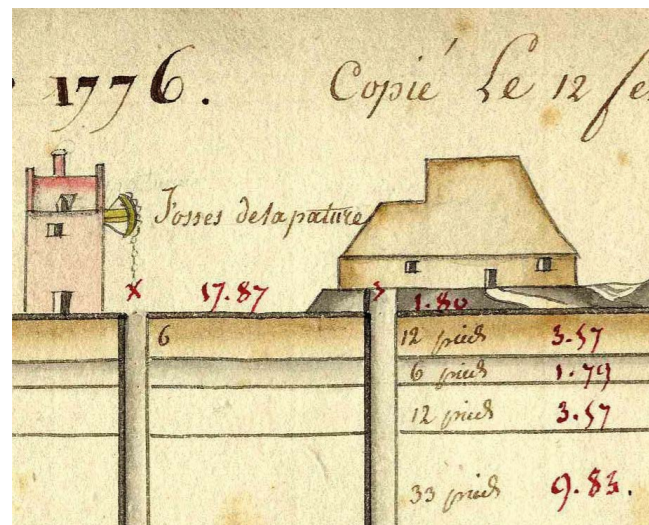 1776.
Copié Le 12
Fosses de la pature
x 17.87 3 1.80
6 12 pieds 3.57
6 pieds 1.79
12 pieds 3.57
33 pieds 9.83.